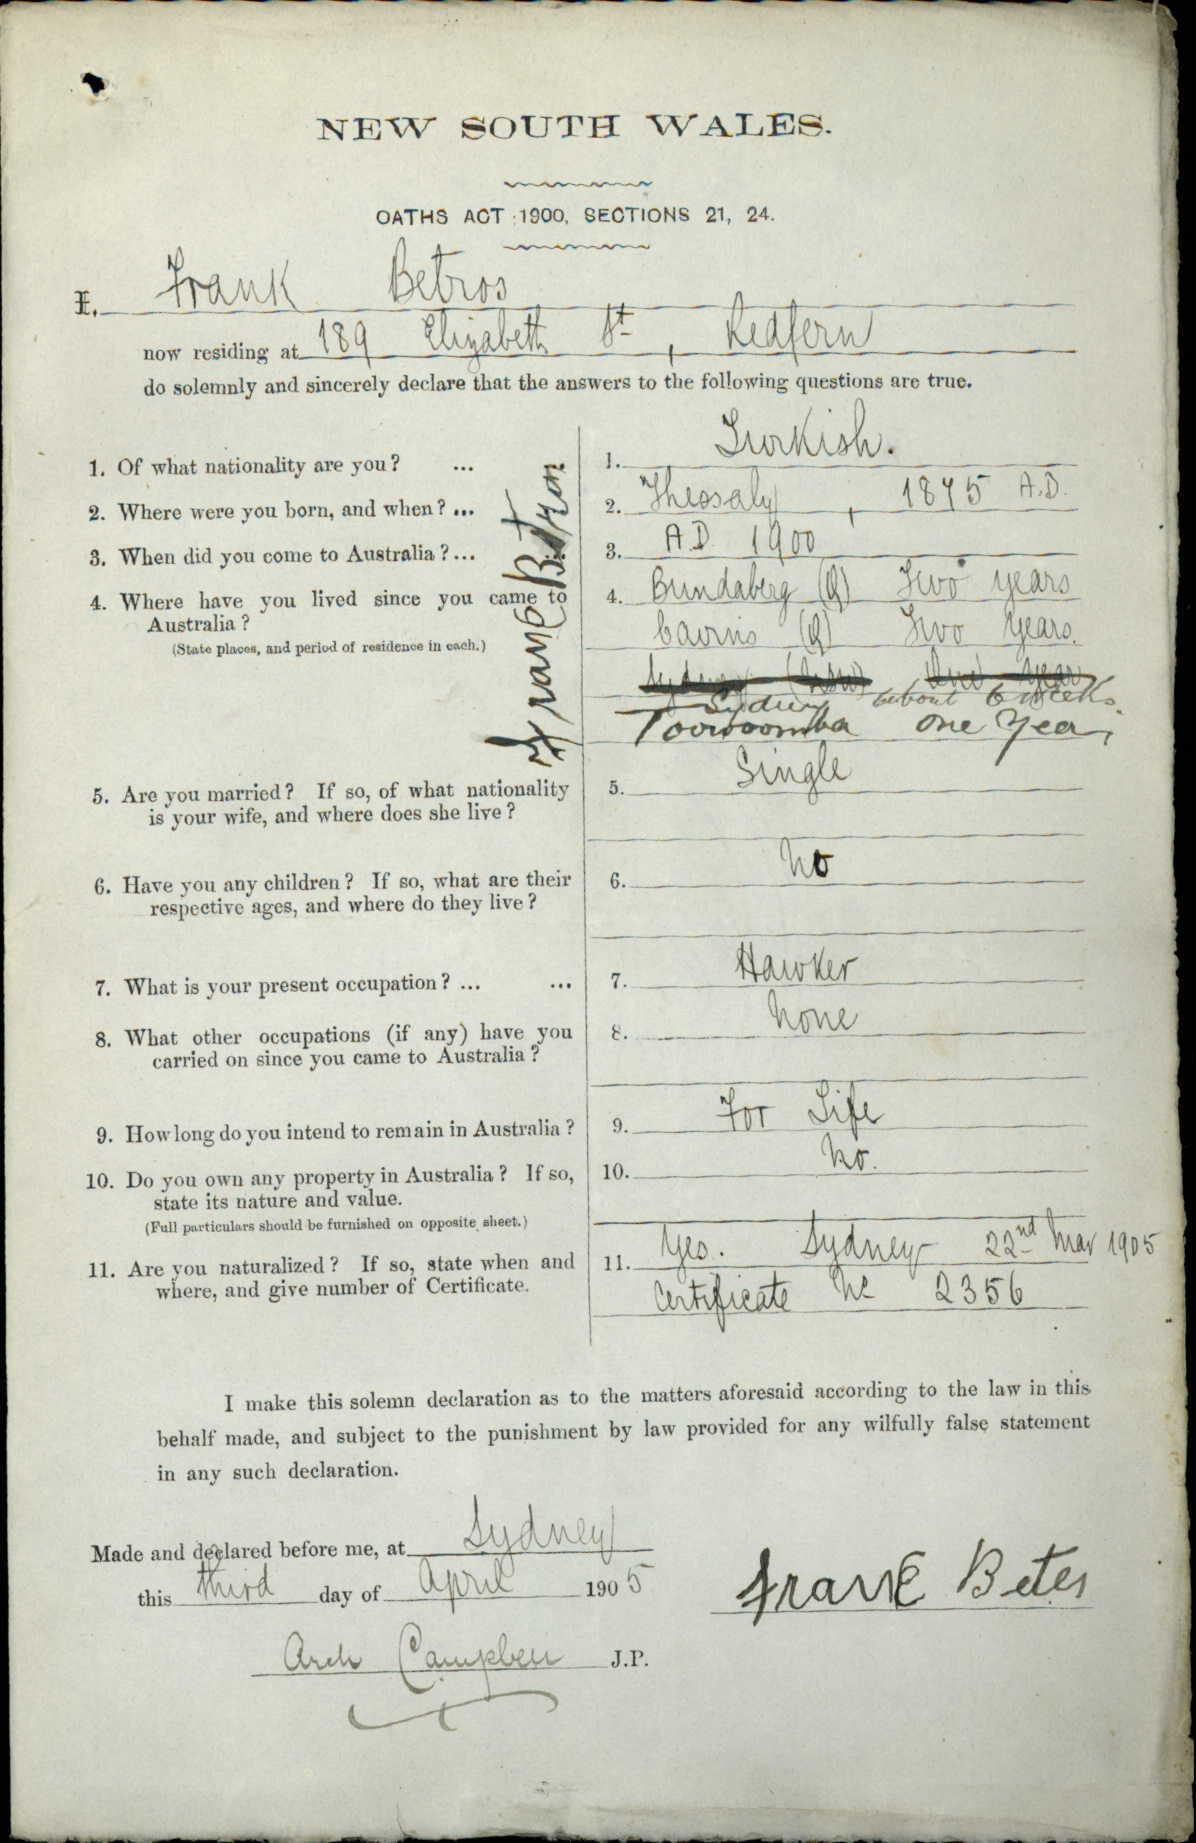 NEW SOUTH WALES.
OATHS ACT 1900, SECTIONS 21, 24.
I, Frank Betros
now residing at 189 Elizabeth St, Redfern
do solemnly and sincerely declare that the answers to the following questions are true.
1. Of what nationality are you? ... 1. Turkish.
2. Where were you born, and when? ... 2. Thessaly, 1875 A.D.
3. When did you come to Australia? ... 3. AD 1900
4. Where have you lived since you came to 4. Bundaberg (Q) Two years
Australia? Cairns (Q) Two Years.
(State places, and period of residence in each.)
Sydney (NSW) One Year
Sydney about 6 weeks.
Toowoomba one Year
Frank Betros
5. Are you married? If so, of what nationality 5. Single
is your wife, and where does she live?
6. Have you any children? If so, what are their 6. No
respective ages, and where do they live?
7. What is your present occupation? ... ... 7. Hawker
8. What other occupations (if any) have you 8. None
carried on since you came to Australia?
9. How long do you intend to remain in Australia? 9. For Life
10. Do you own any property in Australia? If so, 10. No.
state its nature and value.
(Full particulars should be furnished on opposite sheet.)
11. Are you naturalized? If so, state when and 11. Yes. Sydney 22nd Mar 1905
where, and give number of Certificate. Certificate No 2356
I make this solemn declaration as to the matters aforesaid according to the law in this
behalf made, and subject to the punishment by law provided for any wilfully false statement
in any such declaration.
Made and declared before me, at Sydney
this third day of April 1905
Frank Betes
Arch Campbell J.P.